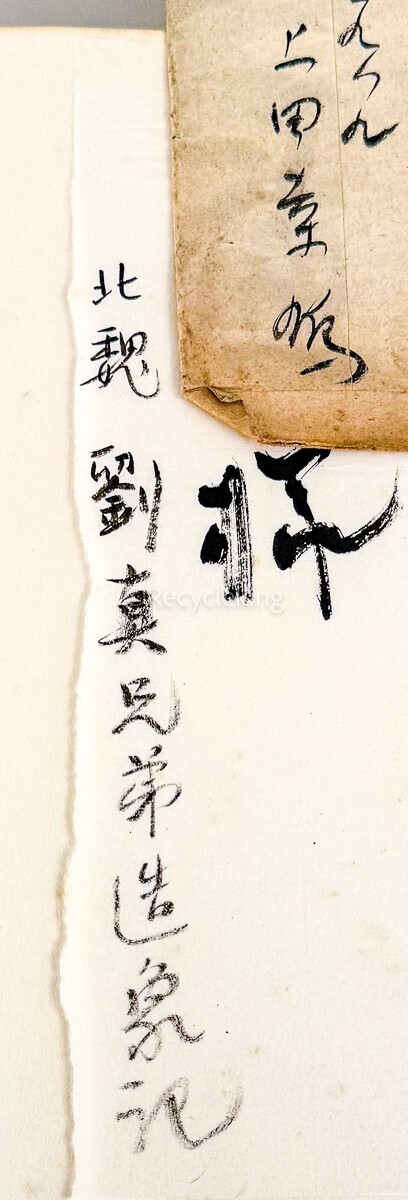 上田桒鳩
様
北魏 劉真兄弟造象記